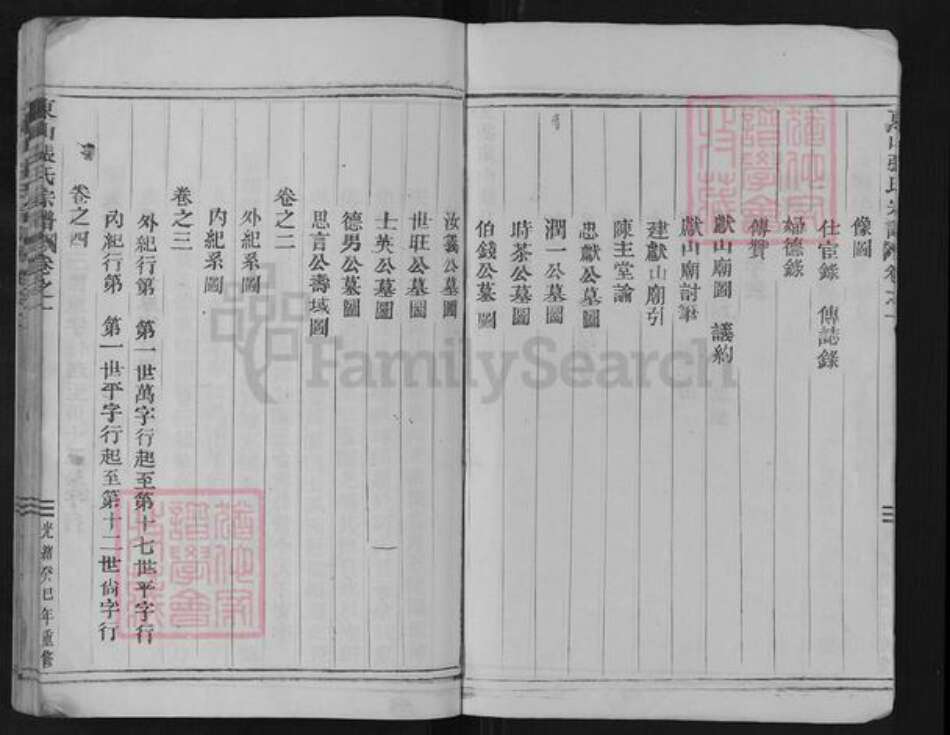 東山張氏宗譜 卷之一
像圖
仕宦錄 傳誌錄
婦德錄
傳贊
獻山廟圖 議約
獻山廟討筆
建獻山廟引
陳主堂論
忠獻公墓圖
潤一公墓圖
時茶公墓圖
伯錢公墓圖
汝曇公墓圖
世旺公墓圖
士英公墓圖
德男公墓圖
思言公壽域圖
卷之二
外紀系圖
內紀系圖
卷之三
外紀行第 第一世萬字行起至第十七世平字行
內紀行第 第一世平字行起至第十二世尙字行
卷之四
東山張氏宗譜 卷之一
光緒癸巳年重修
FamilySearch